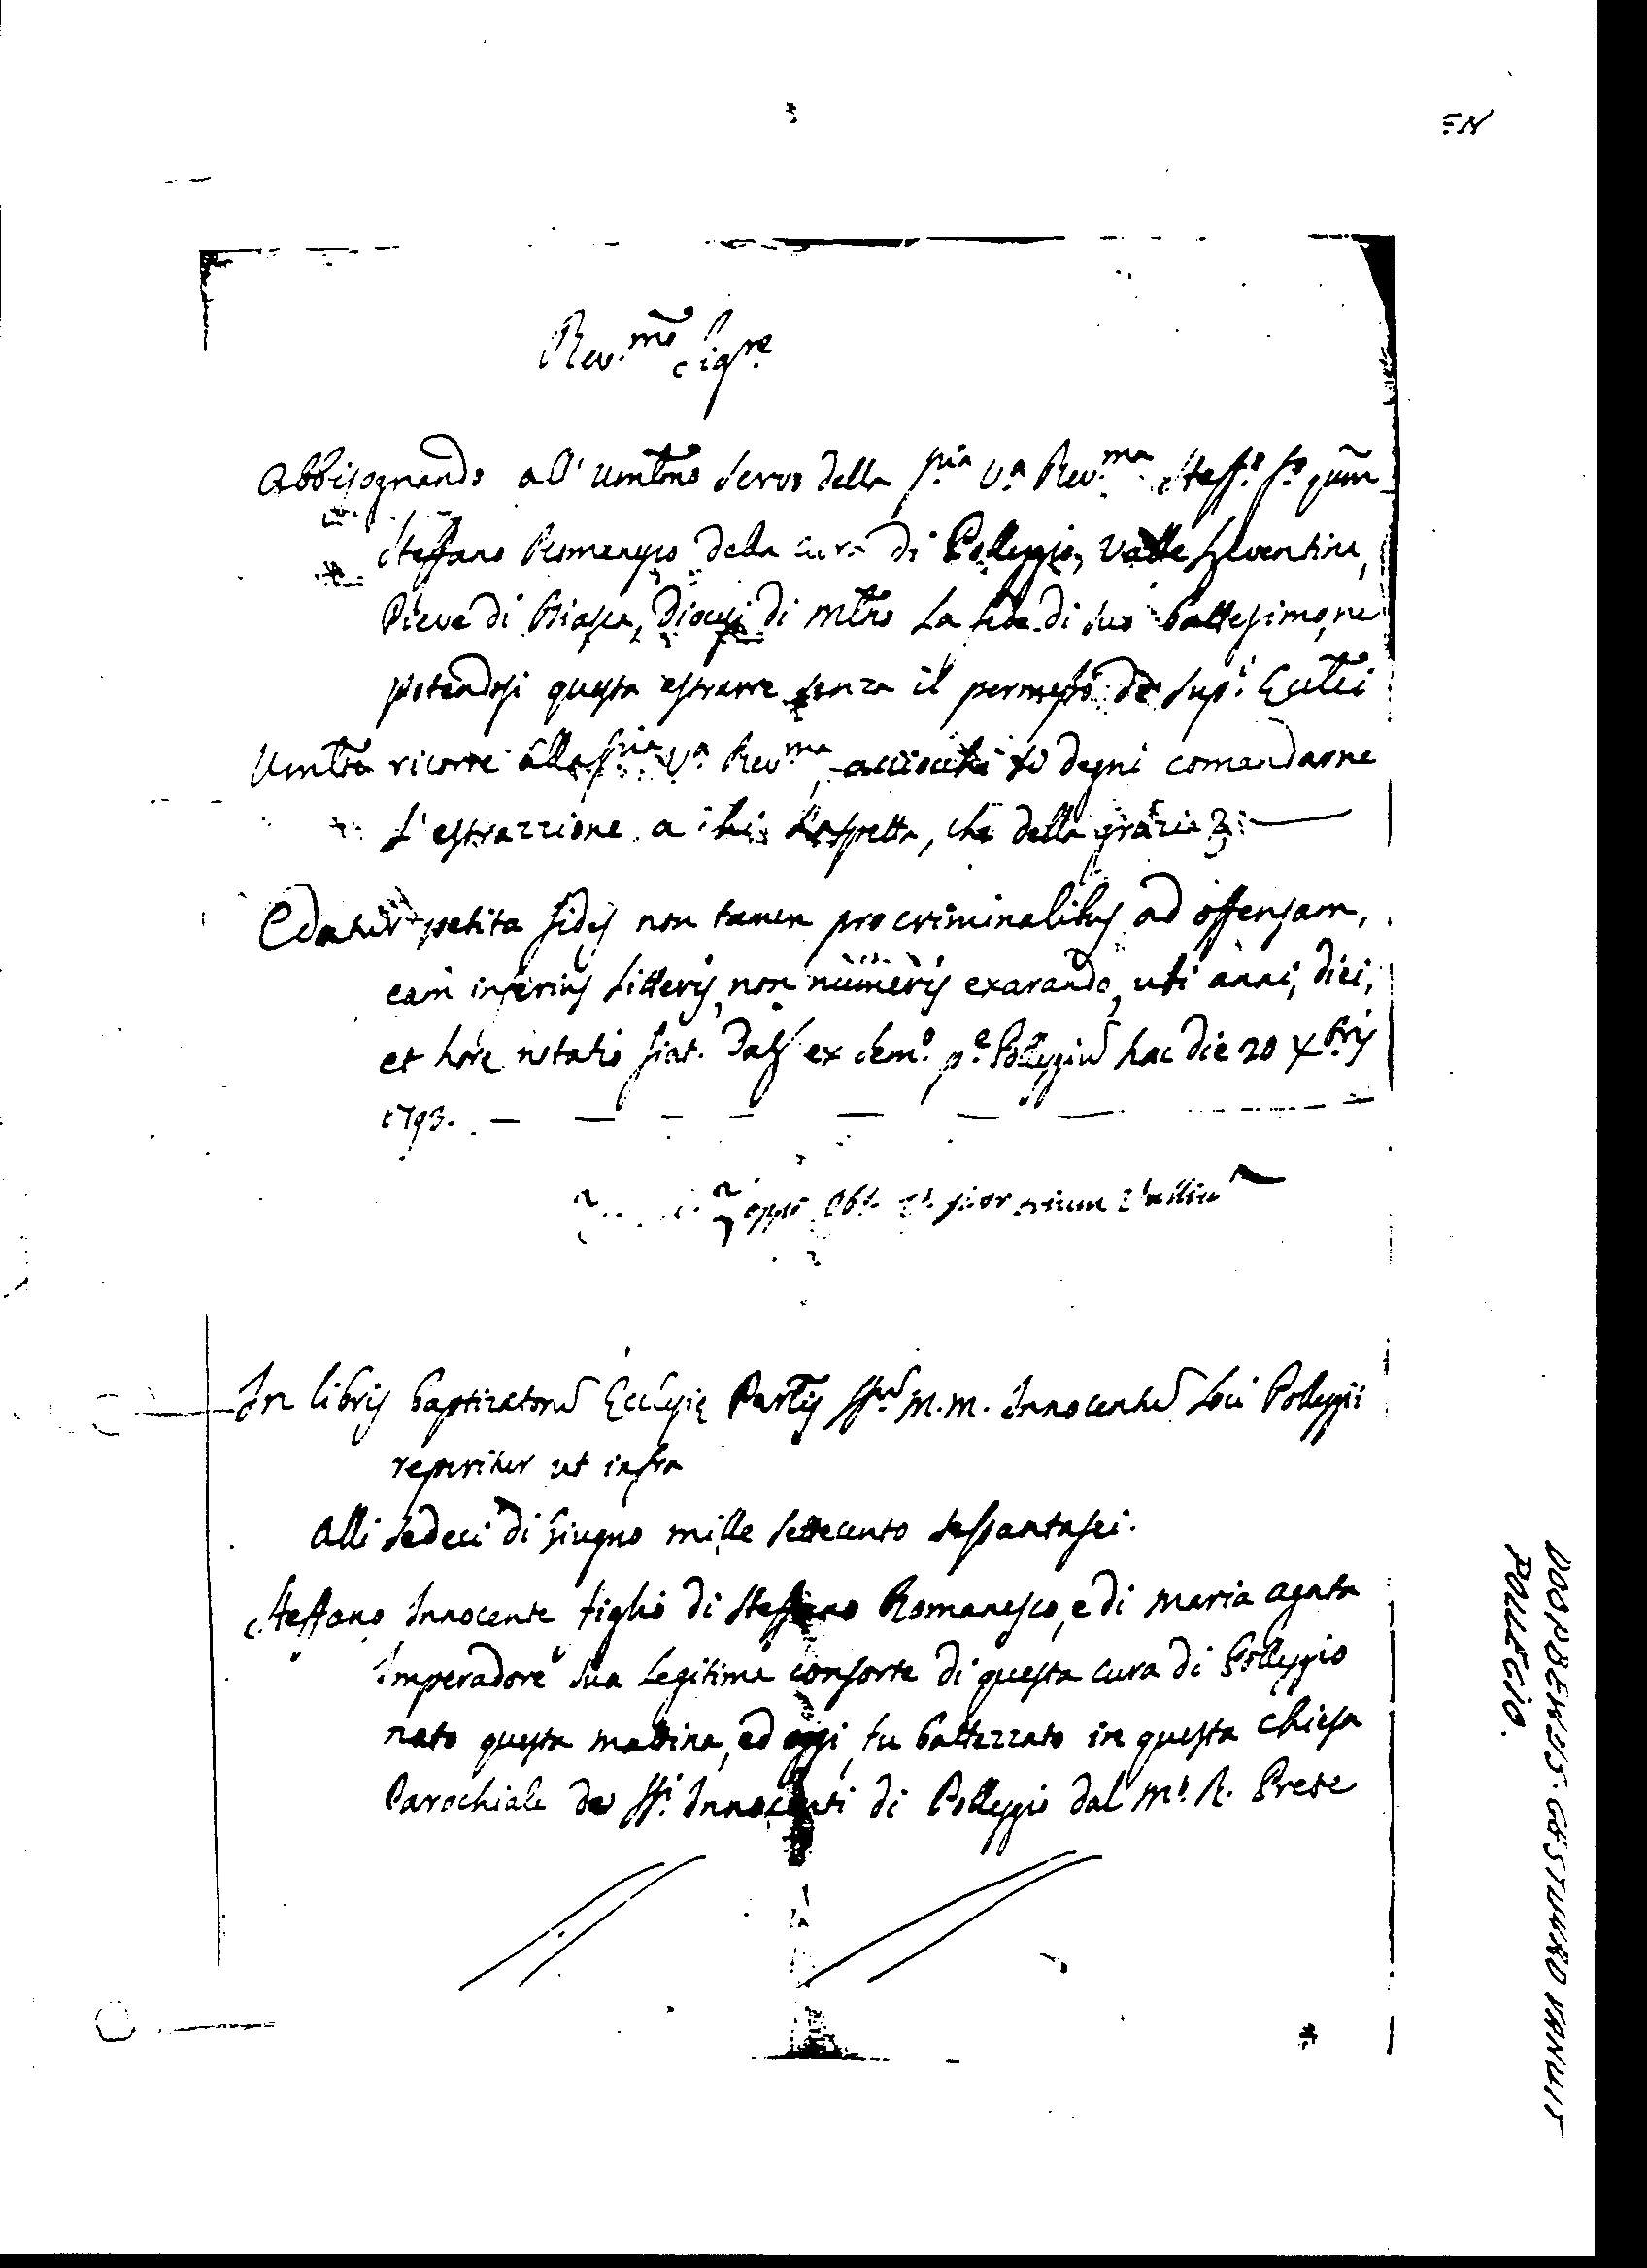 EN
Rev.mo Sigre
Abbisognando all' umilmo servo della Sria Va Rev.ma Steffo fo qum
Steffano Romanesco della cura di Polleggio, Valle Leventina,
Pieve di Biasca, Diocesi di Mlno La fede di suo Battesimo, ne
potendosi questa estrarre senza il permesso de Sup.i Eccltci
Umilte ricorre alla Sria Va Rev.ma, acciocchè si degni comandarne
L'estrazzione a chi s'aspetta, che della grazia
Edatur petita fides non tamen pro criminalibus ad offensam,
eam inferius Litteris, non numeris exarando, uti anni, diei,
et horæ notatio fiat. Dat ex Sem.o p.o Polegii hac die 20 Xbris
1793.
trium Vallium
In libris baptizatorum Ecclesiæ Parlis SS. M. M. Innocentium Loci Pollegii
reperitur ut infra
Alli sedeci di Giugno mille settecento sessantasei.
Steffano Innocente figlio di Steffano Romanesco, e di Maria Agata
Imperadore sua Legitima consorte di questa cura di Polleggio
nato questa mattina, ed oggi fu battezzato in questa Chiesa
Parochiale de SS.i Innocenti di Polleggio dal M.o R. Prete
DOOPBEWYS. GESTUURD VANUIT
POLLEGIO.